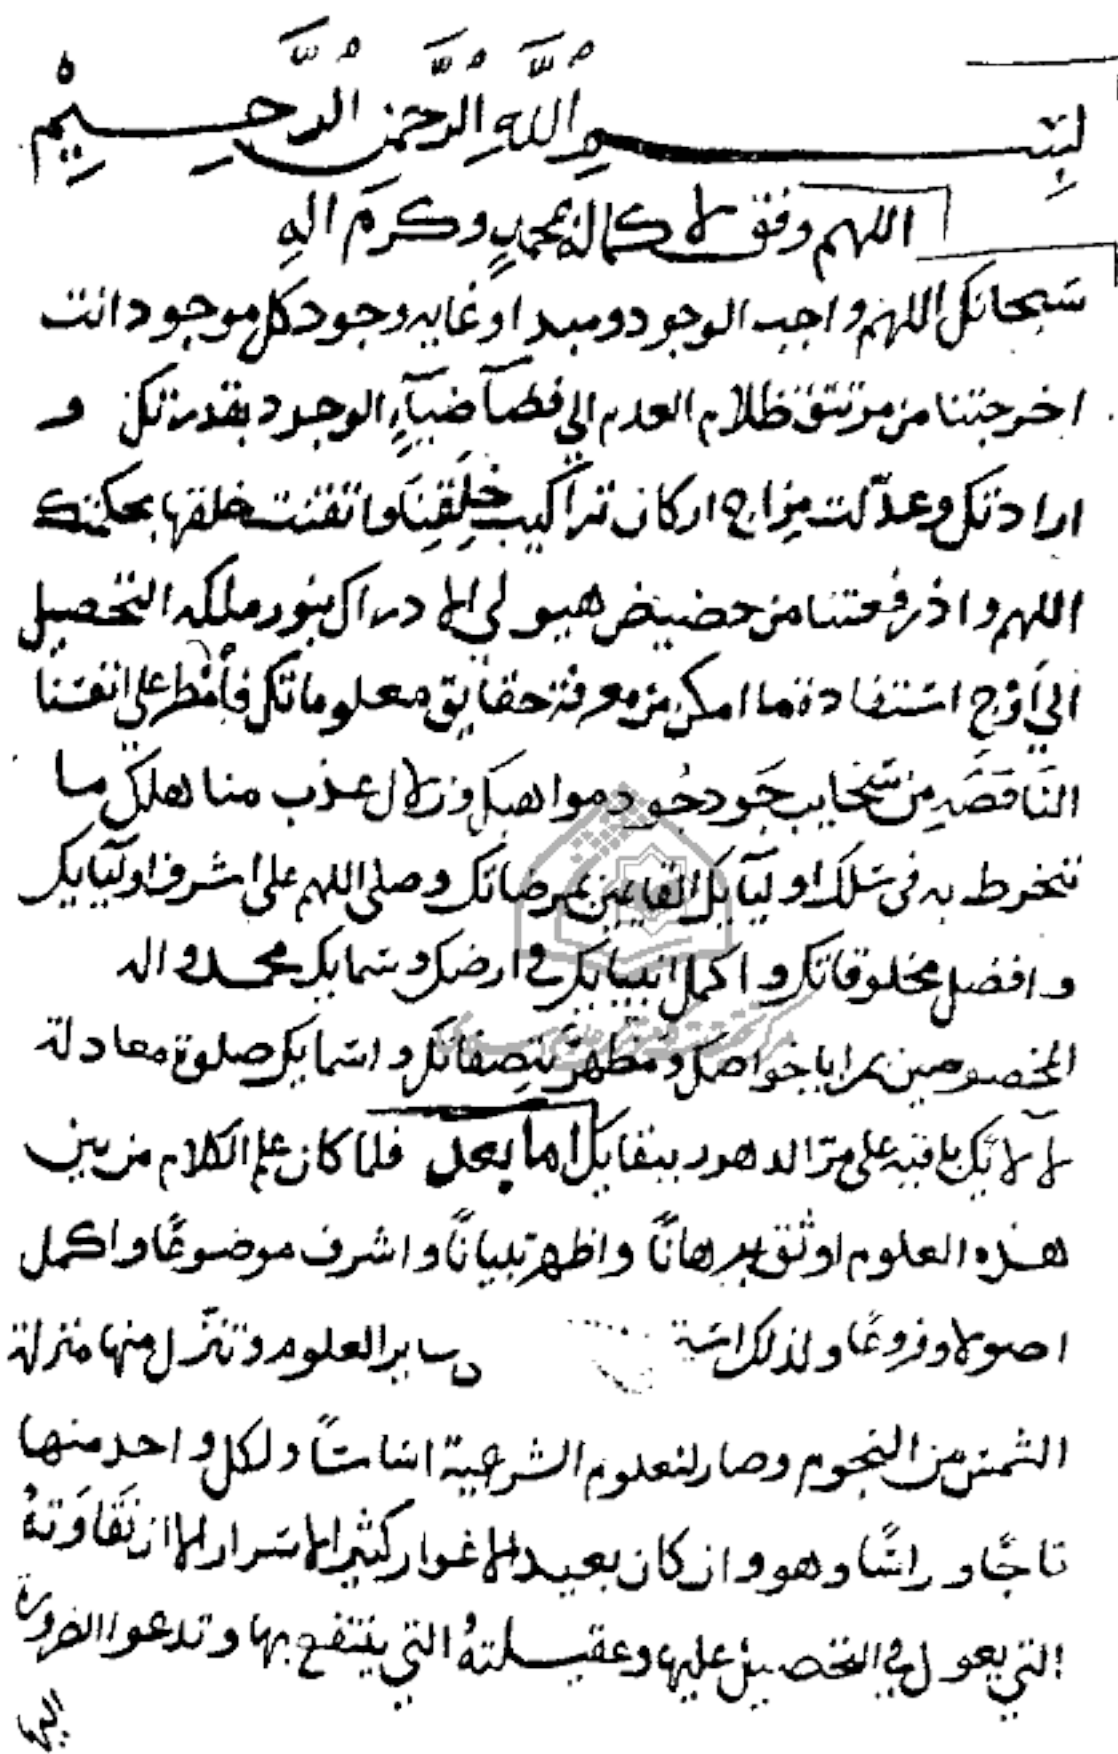 بسم اللّه الرّحمن الرّحيم
اللهم وفق لاكماله بمحمد وكرم اله
سبحانك اللهم واجب الوجود ومبدا وغايه وجود كل موجود انت
اخرجتنا من رتق ظلام العدم الي فضآ ضيآء الوجود بقدرتك و
ارادتك وعدّلت مزاج اركان تراكيب خلقنا واتقنت خلقها بحكمتك
اللهم واذ رفعتنا من حضيض هيولي الادراك بنور ملكه التحصيل
الي اوج استفادة ما امكن من معرفة حقايق معلوماتك فأمطر علي انفسنا
الناقصه من سحايب جَود جُود مواهبك وزلال عذب مناهلك ما
ننخرط به في سلك اوليآيك الفايزين بمرضاتك وصلي اللهم علي اشرف اوليآيك
وافضل مخلوقاتك واكمل انبيايك في ارضك وسمايك محمد واله
المخصوصين بمزايا خواصك ومظهري صفاتك واسمايك صلوة معادلة
لآلائك باقيه علي مرّ الدهور ببقايك اما بعد فلما كان علم الكلام من بين
هذه العلوم اوثق برهاناً واظهر تبياناً واشرف موضوعًا واكمل
اصولا وفروعًا ولذلك سايرالعلوم وتنزّل منها منزلة
الشمس من النجوم وصار للعلوم الشرعية اساسًا ولكل واحد منها
تاجًا وراسًا وهو وان كان بعيد الاغوار كثير الاسرار الا ان نقاوته
التي يعول في التحصيل عليها وعقيلتهُ التي ينتفع بها وتدعوا الضرورة
اليها